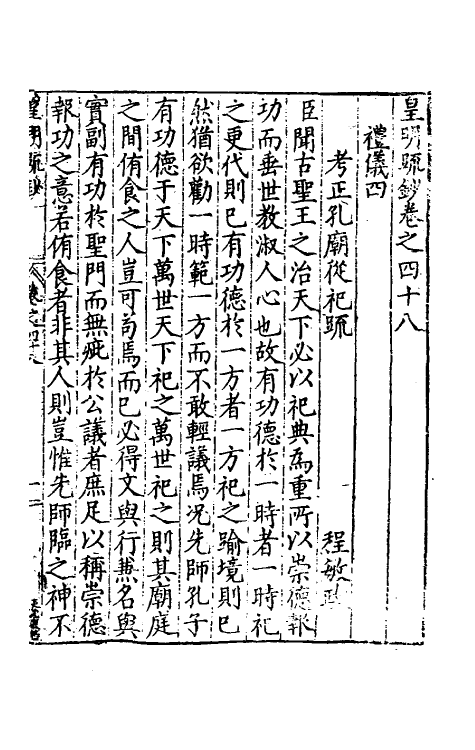 皇明疏鈔卷之四十八
禮儀四
考正孔廟從祀疏
程敏政
臣聞古聖王之治天下必以祀典爲重所以崇德報
功而垂世教淑人心也故有功德於一時者一時祀
之更代則已有功德於一方者一方祀之踰境則已
然猶欲勸一時範一方而不敢輕議焉况先師孔子
有功德于天下萬世天下祀之萬世祀之則其廟庭
之間侑食之人豈可苟焉而已必得文與行兼名與
實副有功於聖門而無疵於公議者庶足以稱崇德
報功之意若侑食者非其人則豈惟先師臨之神不
皇明疏鈔
卷之四十八
一